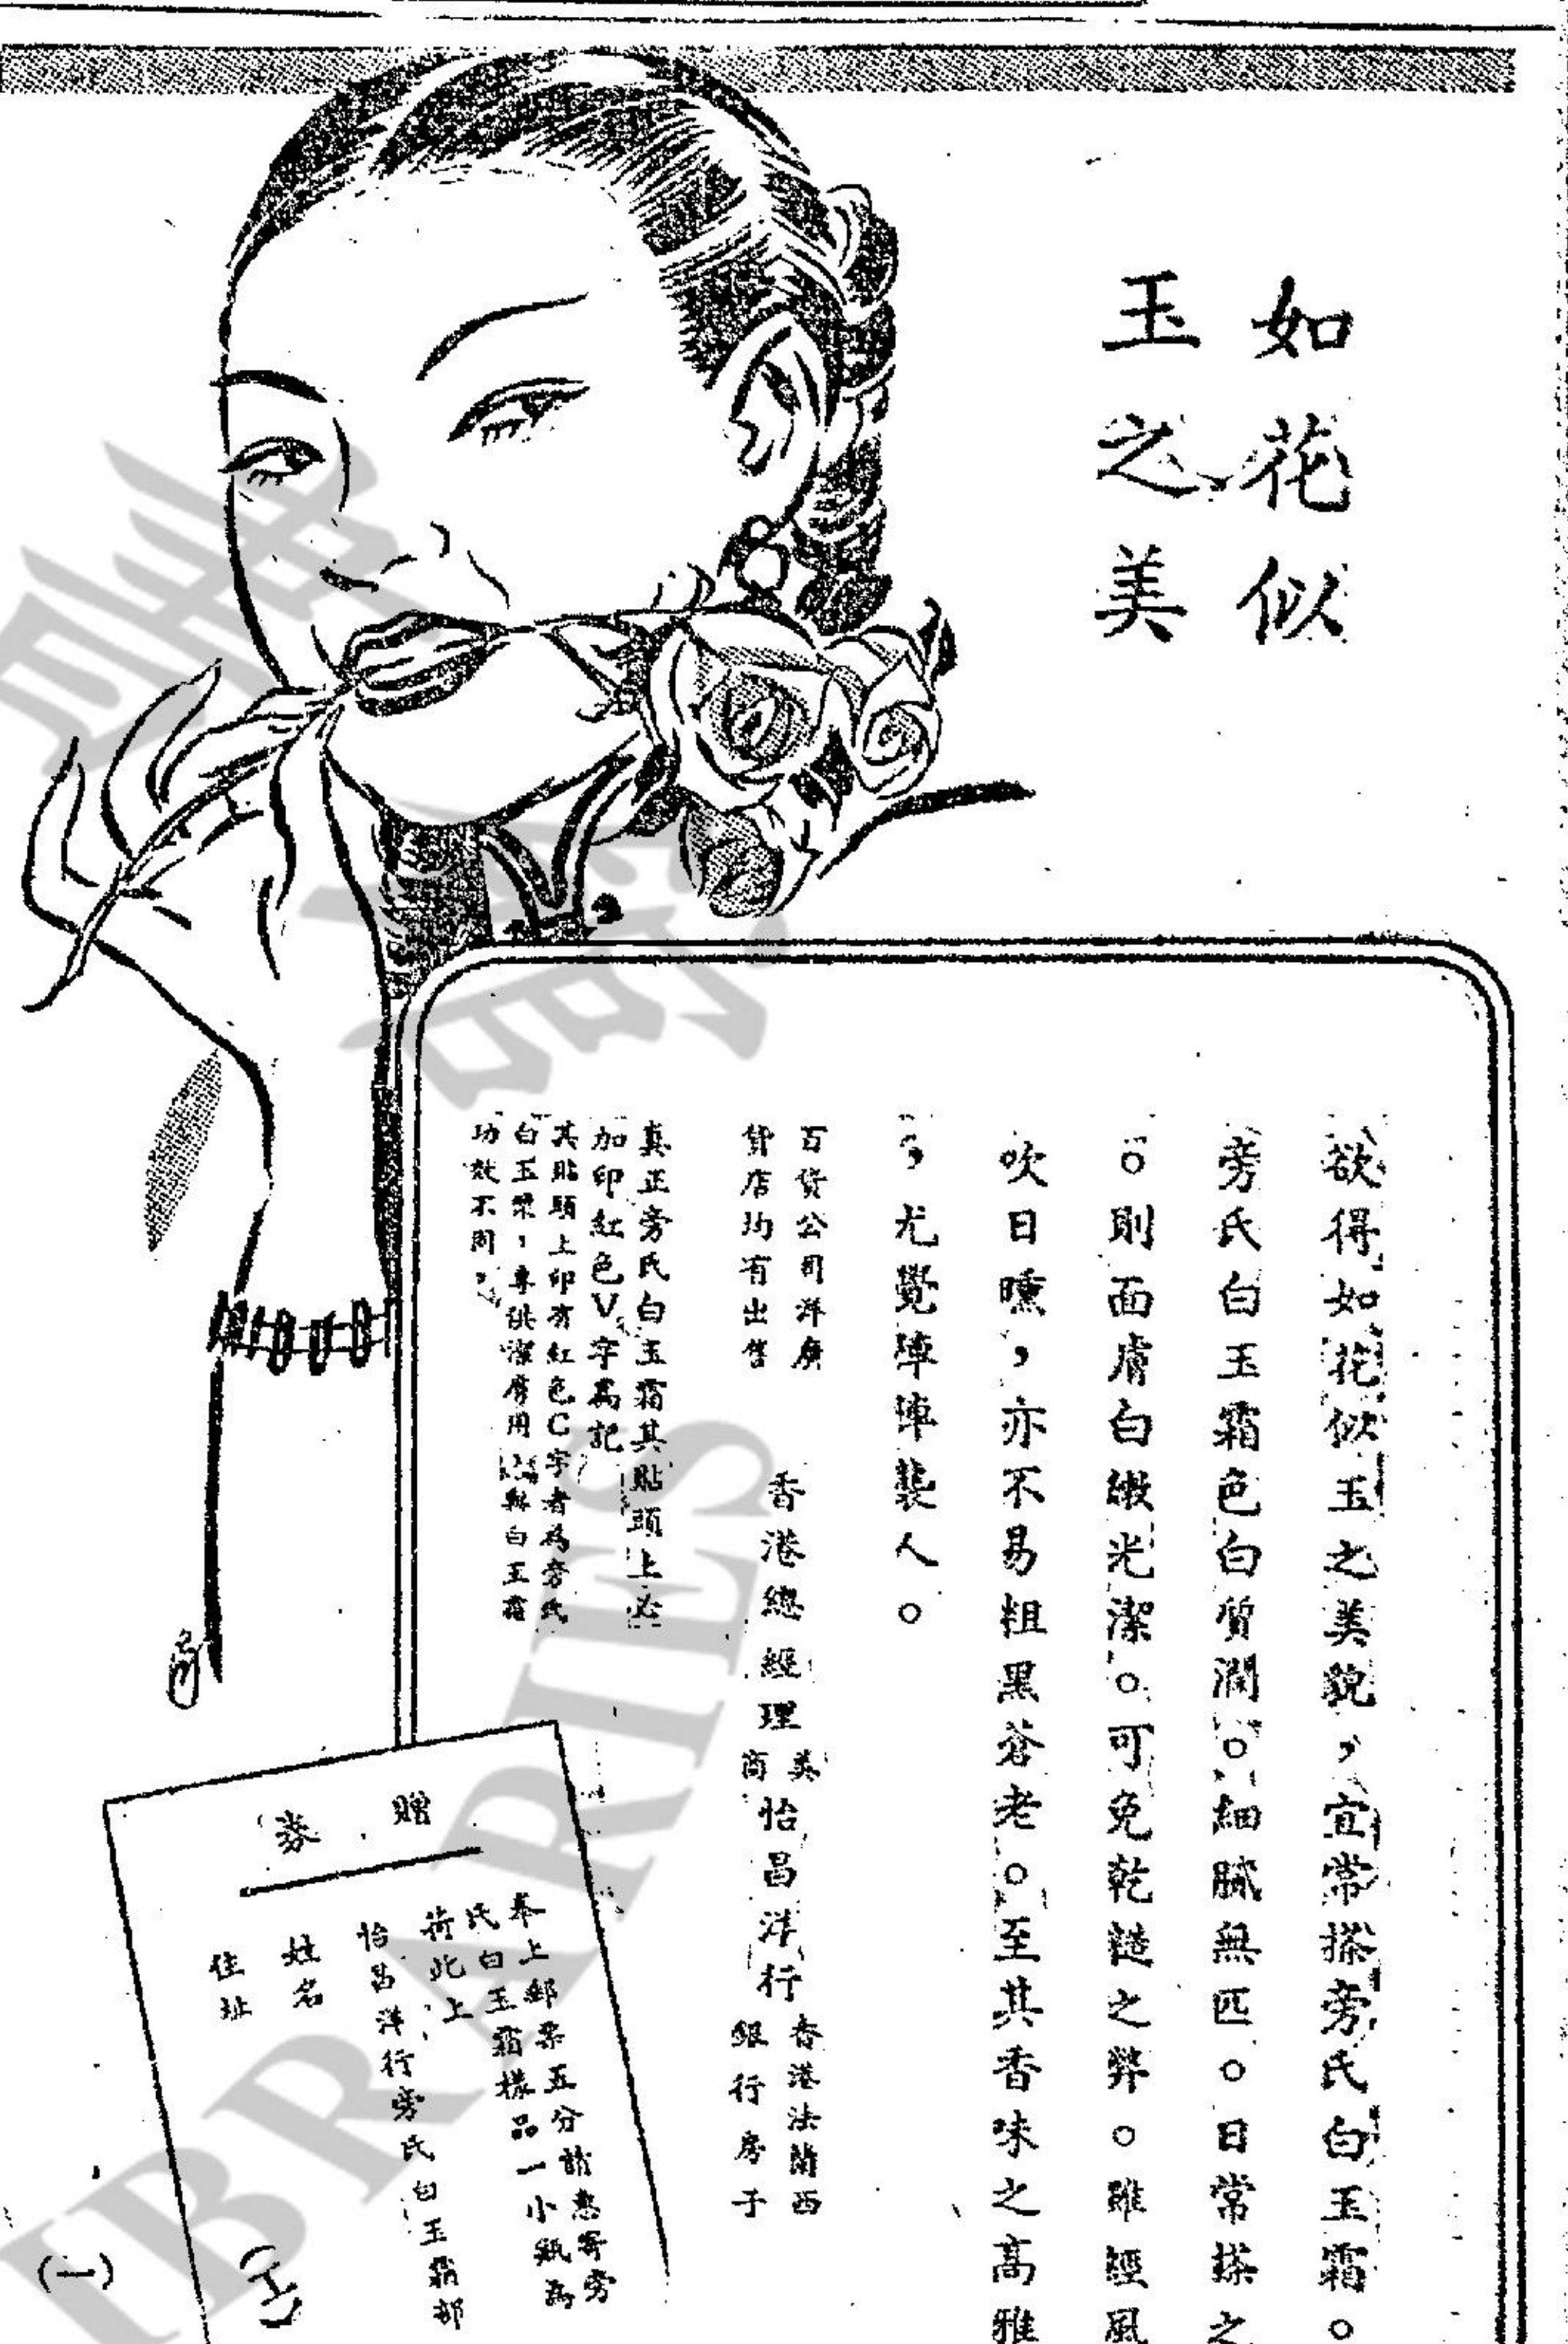 如花似
玉之美
欲得如花似玉之美貌，宜常搽旁氏白玉霜。
旁氏白玉霜色白質潤。細膩無匹。日常搽之
。則面膚白緻光潔。可免乾䵟之弊。雖經風
吹日曛，亦不易粗黑蒼老。至其香味之高雅
，尤覺陣陣襲人。
百貨公司洋廣
貨店均有出售
香港總經理
美商
怡昌洋行
香港法蘭西
銀行房子
真正旁氏白玉霜其貼頭上必
加印紅色V字為記
其貼頭上印有紅色C字者為旁氏
白玉漿，專供潔膚用與白玉霜
功效不同
贈券
奉上郵票五分請惠寄旁
氏白玉霜樣品一小瓶為
荷此上
怡昌洋行旁氏白玉霜部
姓名
住址
(工)
(一)
LIBRARIES